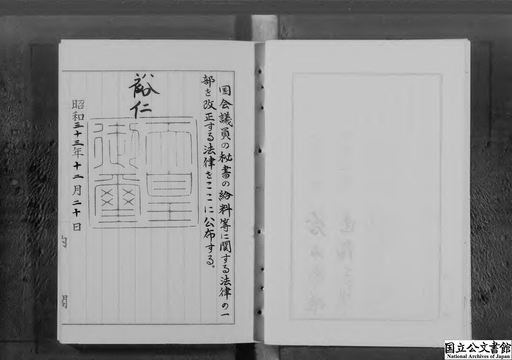 国会議員の秘書の給料等に関する法律の一
部を改正する法律をここに公布する。
裕仁
天皇
御璽
昭和三十三年十二月二十日
内閣
国立公文書館
National Archives of Japan